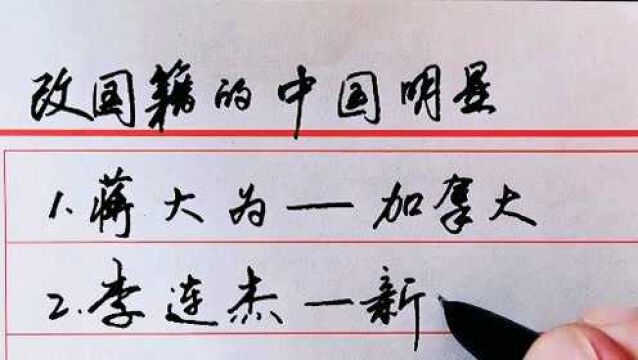 改国籍的中国明星
1.蒋大为—加拿大
2.李连杰—新